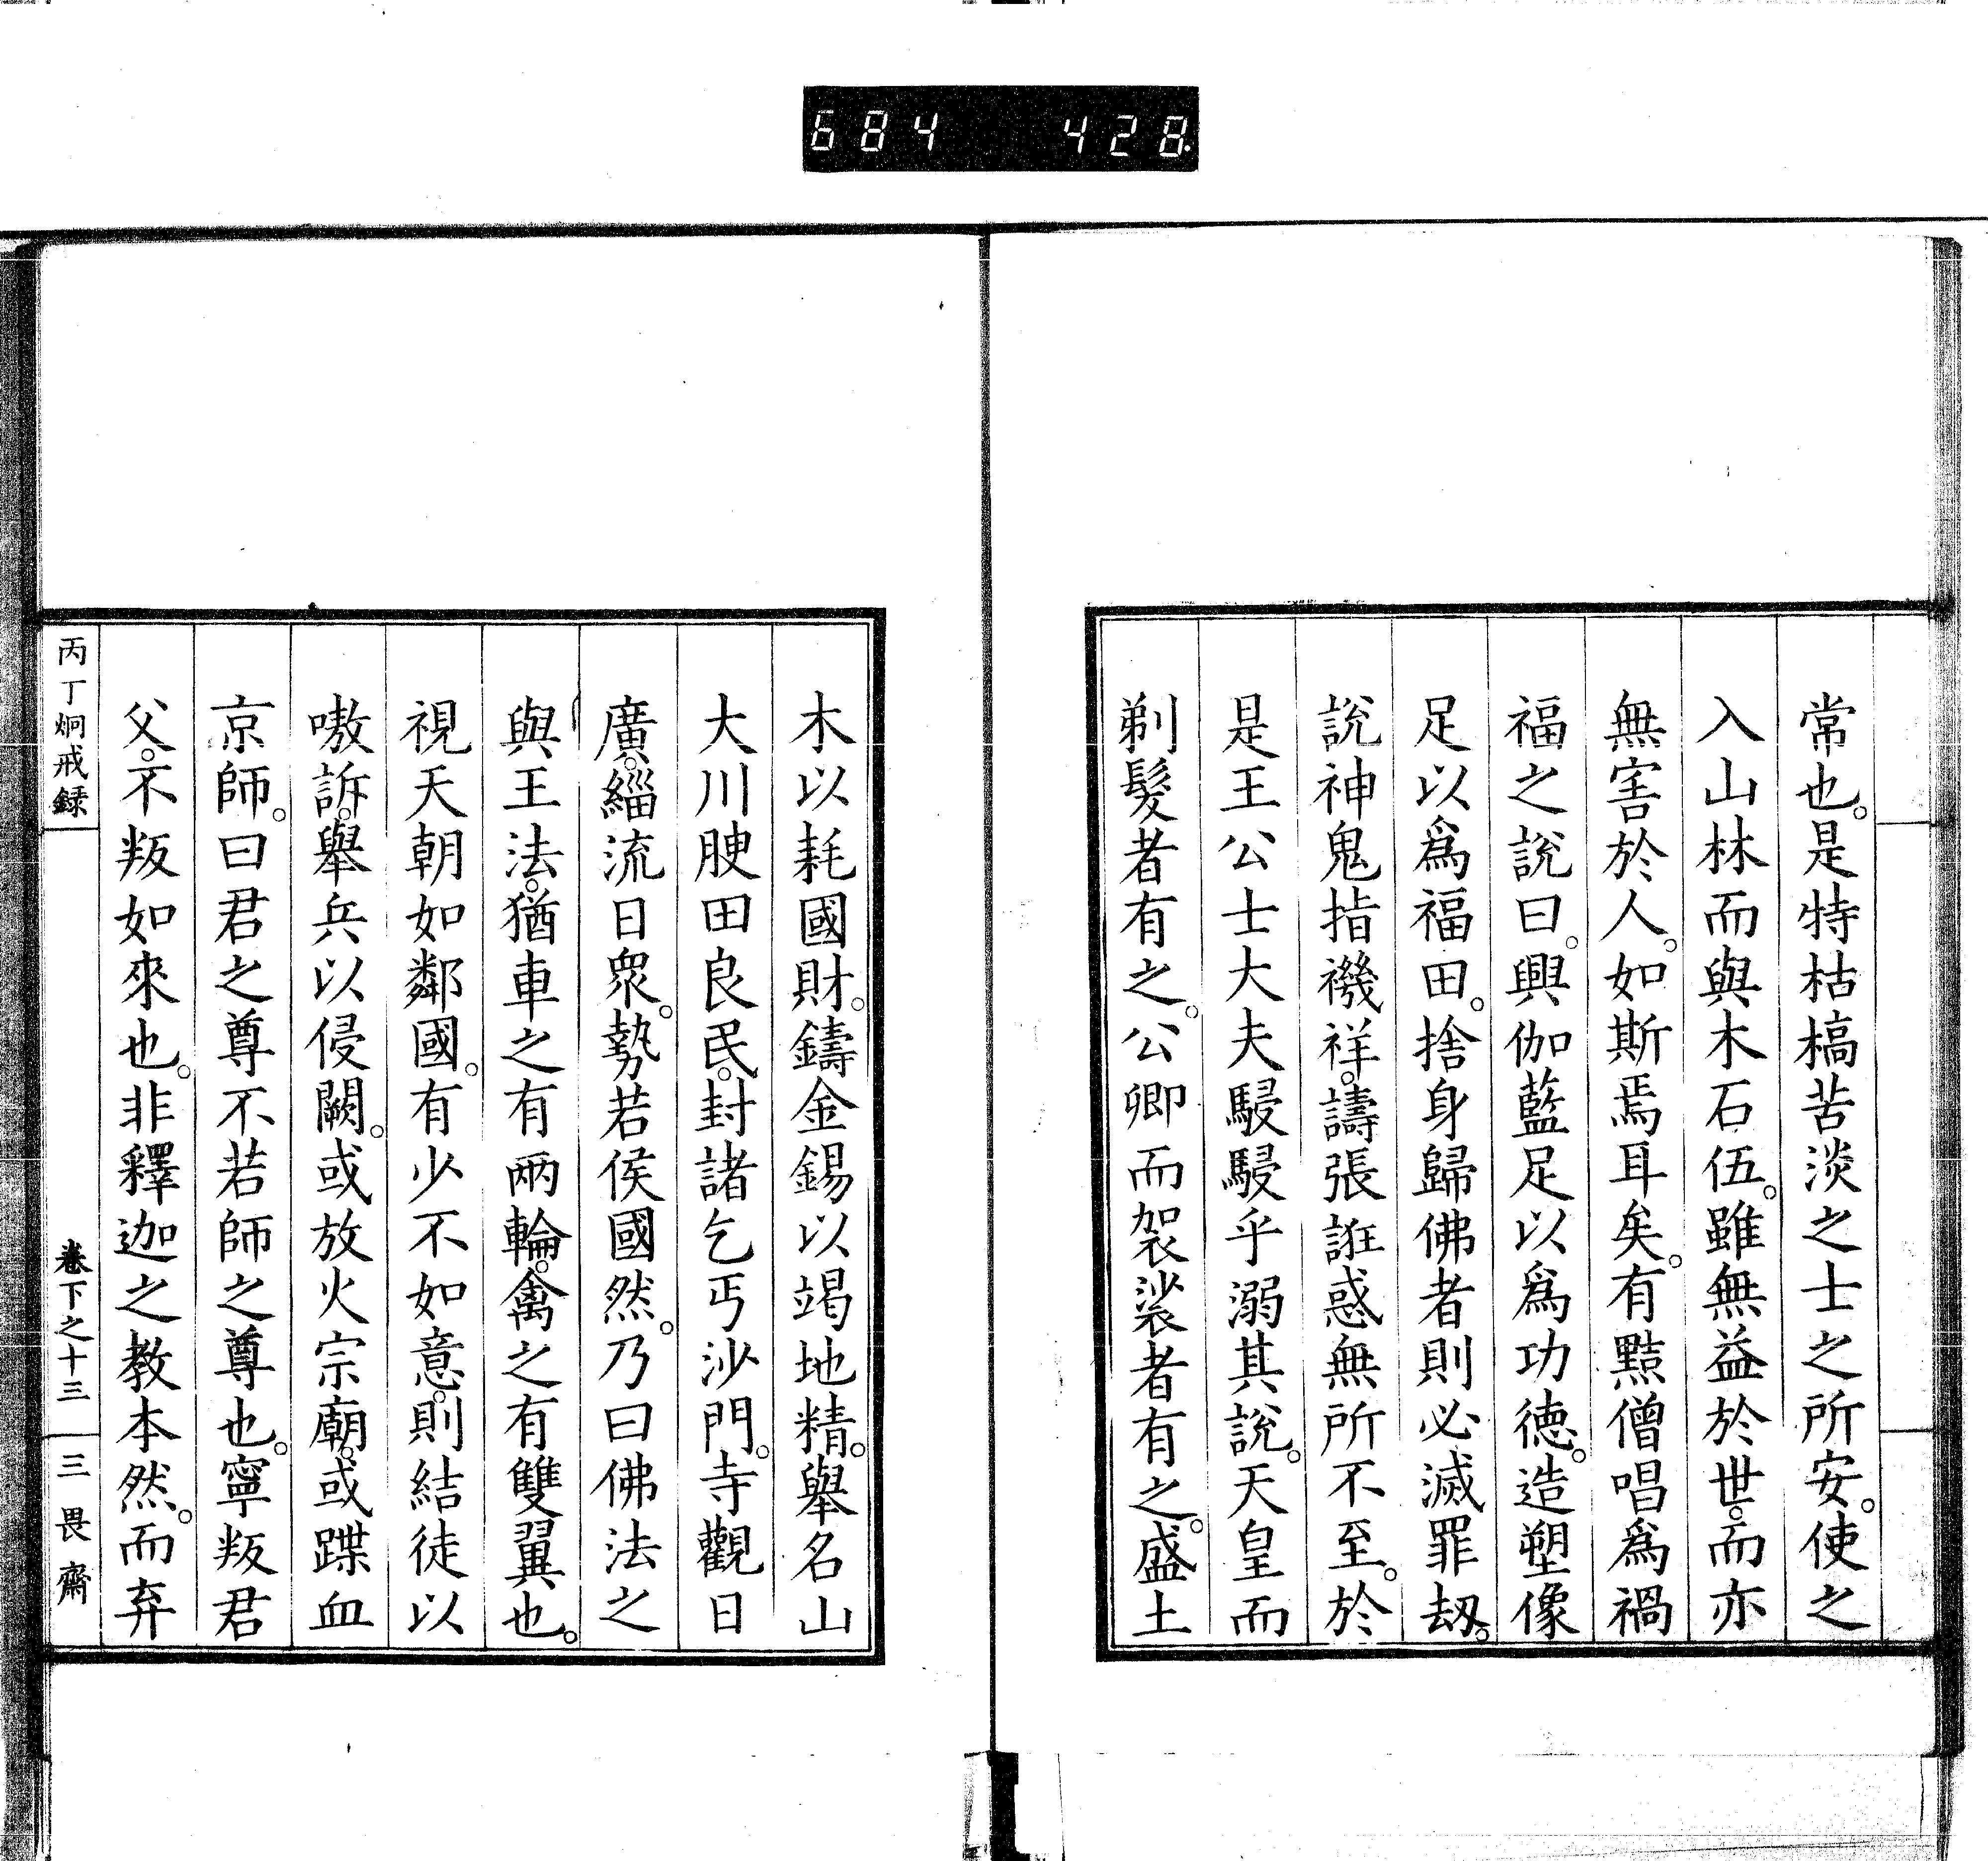 684 428
常也。是特枯槁苦淡之士之所安。使之
入山林而與木石伍。雖無益於世。而亦
無害於人。如斯焉耳矣。有黠僧唱爲禍
福之說曰。興伽藍足以爲功德。造塑像
足以爲福田。捨身歸佛者則必滅罪刼。
說神鬼指禨祥。譸張誑惑無所不至。於
是王公士大夫駸駸乎溺其說。天皇而
剃髮者有之。公卿而袈裟者有之。盛土
木以耗國財。鑄金錫以竭地精。舉名山
大川腴田良民。封諸乞丐沙門。寺觀日
廣。緇流日衆。勢若侯國然。乃曰佛法之
與王法。猶車之有兩輪。禽之有雙翼也。
視天朝如鄰國。有少不如意。則結徒以
嗷訴。舉兵以侵闕。或放火宗廟。或蹀血
京師。曰君之尊不若師之尊也。寧叛君
父。不叛如來也。非釋迦之教本然。而弃
丙丁炯戒録 卷下之十三 三畏齋